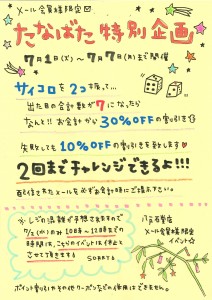 メール会員様限定✉
たなばた特別企画
7月1日(ズ)〜7月7日(木)まで開催
サイコロを2つ振って…
出た目の合計数が7になったら
なんと!!お会計から30%OFFの割引き
失敗しても10%OFFの割引きを致します♥
2回までチャレンジできるよ!!!
配信されたメールを必ずお会計時にご提示下さい。
※レジの混雑が予想されますので
の10時〜12時までの
時間は、こちらのイベントは休止と
させて頂きます
SORRY
メール会員様限定
イベント☆
ポイント割引きやその他クーポンなどの併用はできません。